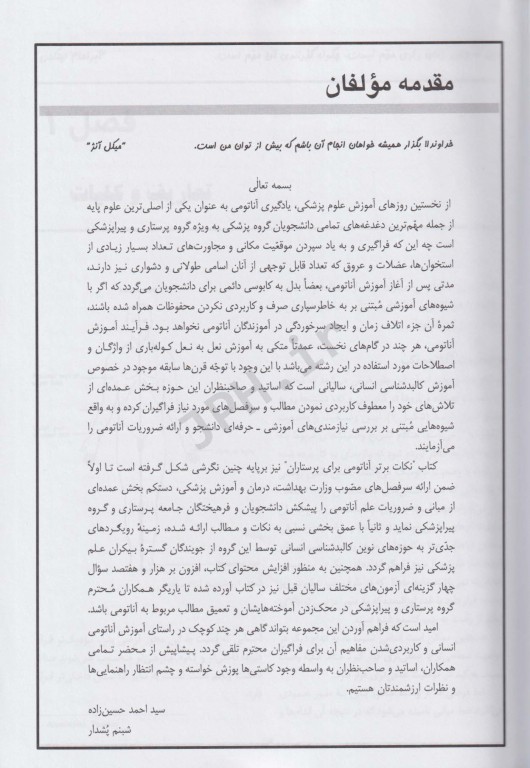 مقدمه مؤلفان
خداوندا بگذار همیشه خواهان انجام آن باشم که بیش از توان من است. "میکل آنژ"
بسمه تعالی
از نخستین روزهای آموزش علوم پزشکی، یادگیری آناتومی به عنوان یکی از اصلی‌ترین علوم پایه
از جمله مهّم‌ترین دغدغه‌های تمامی دانشجویان گروه پزشکی به ویژه گروه پرستاری و پیراپزشکی
است چه این که فراگیری و به یاد سپردن موقعّیت مکانی و مجاورت‌های تعداد بسیار زیادی از
استخوان‌ها، عضلات و عروق که تعداد قابل توجهی از آنان اسامی طولانی و دشواری نیز دارند،
مدتی پس از آغاز آموزش آناتومی، بعضاً بدل به کابوسی دائمی برای دانشجویان می‌گردد که اگر با
شیوه‌های آموزشی مُبتنی بر به خاطرسپاری صرف و کاربردی نکردن محفوظات همراه شده باشند،
ثمرهٔ آن جزء اتلاف زمان و ایجاد سرخوردگی در آموزندگان آناتومی نخواهد بود. فرآیند آموزش
آناتومی، هر چند در گام‌های نخست، عمدتاً متکی به آموزش نعل به نعل کوله‌باری از واژگان و
اصطلاحات مورد استفاده در این رشته می‌باشد با این وجود با توجّه قرن‌ها سابقه موجود در خصوص
آموزش کالبدشناسی انسانی، سالیانی است که اساتید و صاحبنظران این حوزه بخش عمده‌ای از
تلاش‌های خود را معطوف کاربردی نمودن مطالب و سرفصل‌های مورد نیاز فراگیران کرده و به واقع
شیوه‌هایی مُبتنی بر بررسی نیازمندی‌های آموزشی ـ حرفه‌ای دانشجو و ارائه ضروریات آناتومی را
می‌آزمایند.
کتاب "نکات برتر آناتومی برای پرستاران" نیز برپایه چنین نگرشی شکل گرفته است تا اولاً
ضمن ارائه سرفصل‌های مصّوب وزارت بهداشت، درمان و آموزش پزشکی، دستکم بخش عمده‌ای
از مبانی و ضروریات علم آناتومی را پیشکش دانشجویان و فرهیختگان جامعه پرستاری و گروه
پیراپزشکی نماید و ثانیاً با عمق بخشی نسبی به نکات و مطالب ارائه شده، زمینهٔ رویکردهای
جدّی‌تر به حوزه‌های نوین کالبدشناسی انسانی توسط این گروه از جویندگان گسترهٔ بیکران علم
پزشکی نیز فراهم گردد. همچنین به منظور افزایش محتوای کتاب، افزون بر هزار و هفتصد سؤال
چهار گزینه‌ای آزمون‌های مختلف سالیان قبل نیز در کتاب آورده شده تا یاریگر همکاران مُحترم
گروه پرستاری و پیراپزشکی در محک‌زدن آموخته‌هایشان و تعمیق مطالب مربوط به آناتومی باشد.
امید است که فراهم آوردن این مجموعه بتواند گاهی هر چند کوچک در راستای آموزش آناتومی
انسانی و کاربردی‌شدن مفاهیم آن برای فراگیران محترم تلقی گردد. پیشاپیش از محضر تمامی
همکاران، اساتید و صاحب‌نظران به واسطه وجود کاستی‌ها پوزش خواسته و چشم انتظار راهنمایی‌ها
و نظرات ارزشمندتان هستیم.
سید احمد حسین‌زاده
شبنم پُشدار
JPH.ir